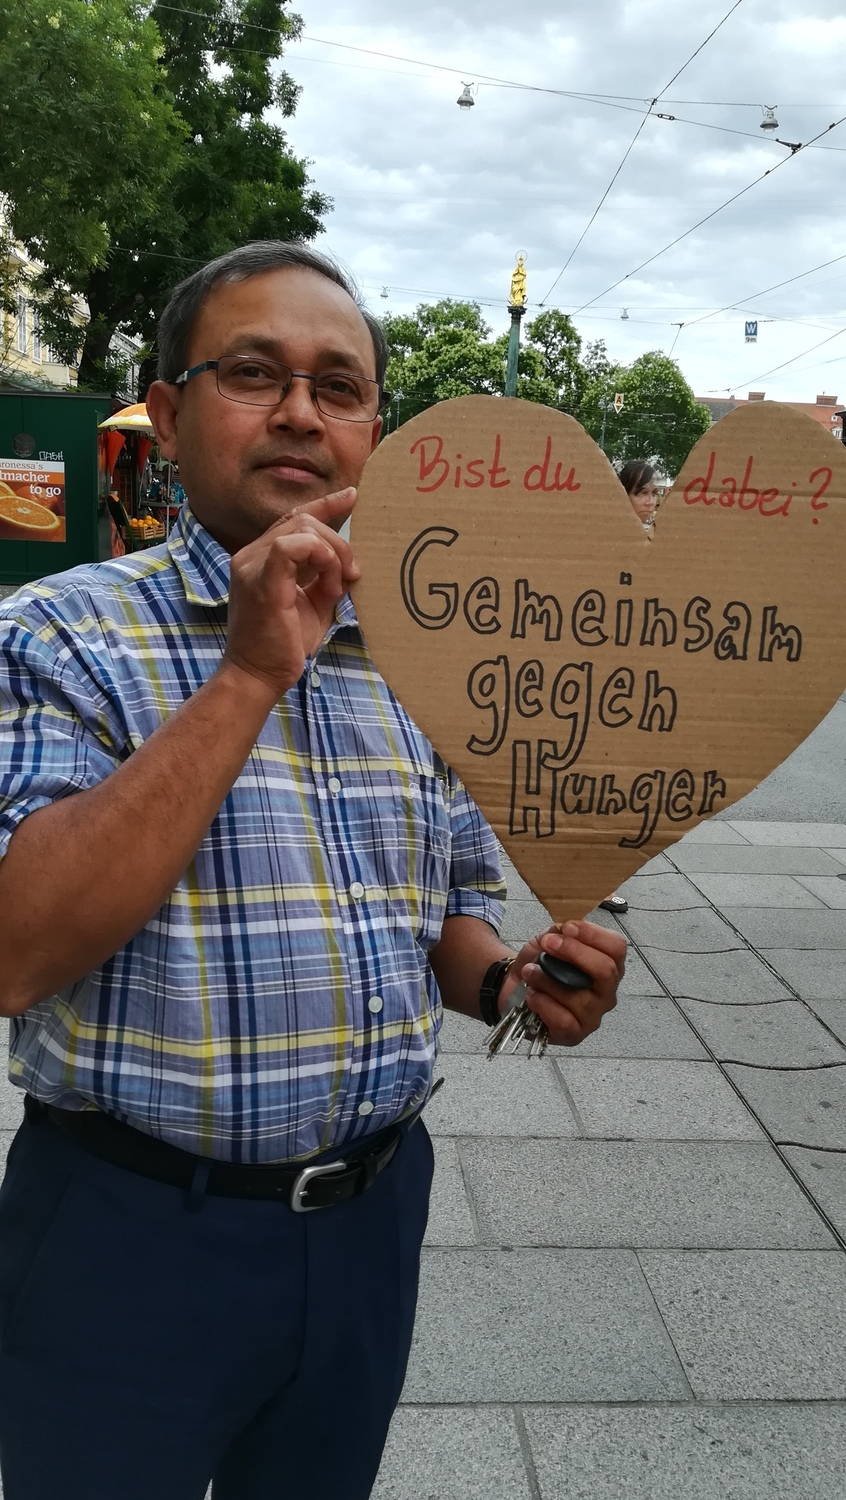 Bist du dabei?
Gemeinsam
gegen
Hunger
ronessa's
tmacher
to go
W
A